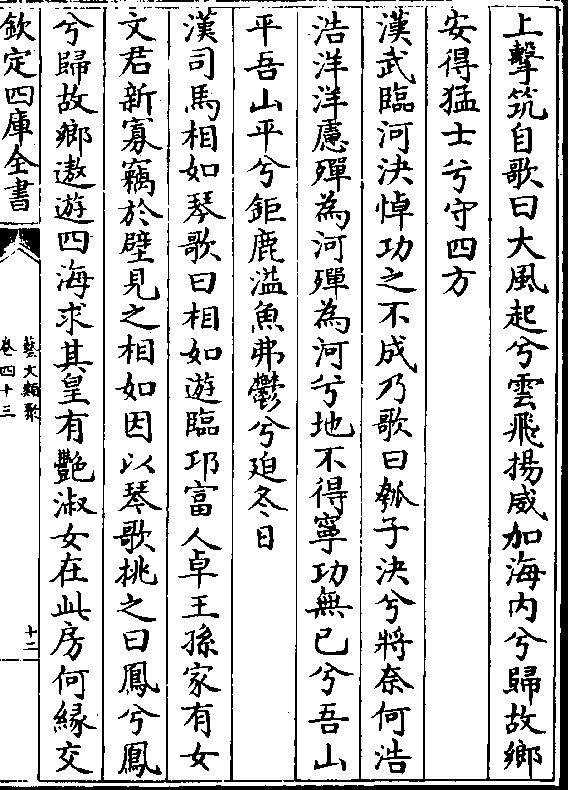 上擊筑自歌曰大風起兮雲飛揚威加海内兮歸故鄉
安得猛士兮守四方
漢武臨河決悼功之不成乃歌曰瓠子決兮將奈何浩
浩洋洋慮殫為河殫為河兮地不得寧功無已兮吾山
平吾山平兮鉅鹿溢魚弗鬱兮迫冬日
漢司馬相如琴歌曰相如遊臨邛富人卓王孫家有女
文君新寡竊於壁見之相如因以琴歌挑之曰鳳兮鳳
兮歸故鄉遨遊四海求其皇有艷淑女在此房何緣交
欽定四庫全書
藝文類聚
卷四十三
十二